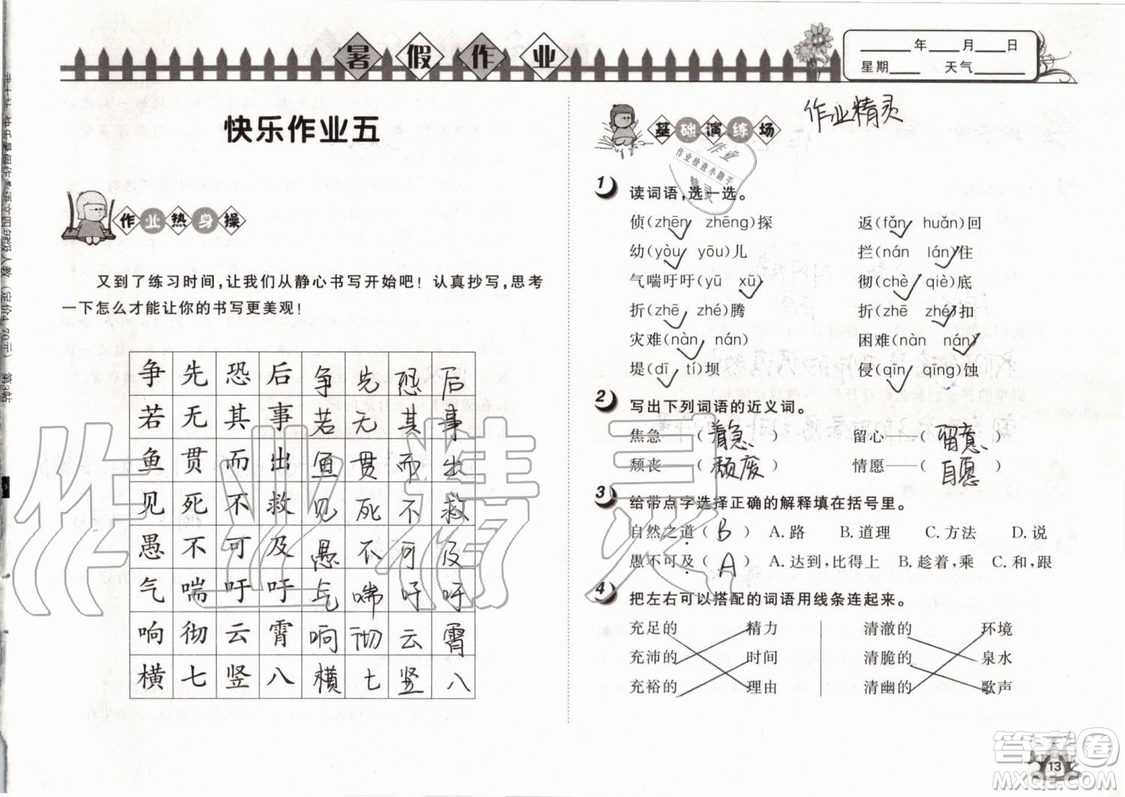 暑假作业
年 月 日
星期 天气
快乐作业五
作业热身操
又到了练习时间,让我们从静心书写开始吧!认真抄写,思考
一下怎么才能让你的书写更美观!
争先恐后争先恐后
若无其事若无其事
鱼贯而出鱼贯而出
见死不救见死不救
愚不可及愚不可及
气喘吁吁气喘吁吁
响彻云霄响彻云霄
横七竖八横七竖八
作业精灵
基础演练场
作业
作业检查小助手
精灵
1 读词语,选一选。
侦(zhēn zhēng)探 返(fǎn huǎn)回
幼(yòu yōu)儿 拦(nán lán)住
气喘吁吁(yū xū) 彻(chè qiè)底
折(zhē zhé)腾 折(zhē zhé)扣
灾难(nàn nán) 困难(nàn nán)
堤(dī tí)坝 侵(qīn qīng)蚀
2 写出下列词语的近义词。
焦急——(着急) 留心——(留意)
颓丧——(颓废) 情愿——(自愿)
3 给带点字选择正确的解释填在括号里。
自然之道( B ) A.路 B.道理 C.方法 D.说
愚不可及( A ) A.达到,比得上 B.趁着,乘 C.和,跟
4 把左右可以搭配的词语用线条连起来。
充足的 精力 清澈的 环境
充沛的 时间 清脆的 泉水
充裕的 理由 清幽的 歌声
13
作业精灵
答案圈
MXQE.COM